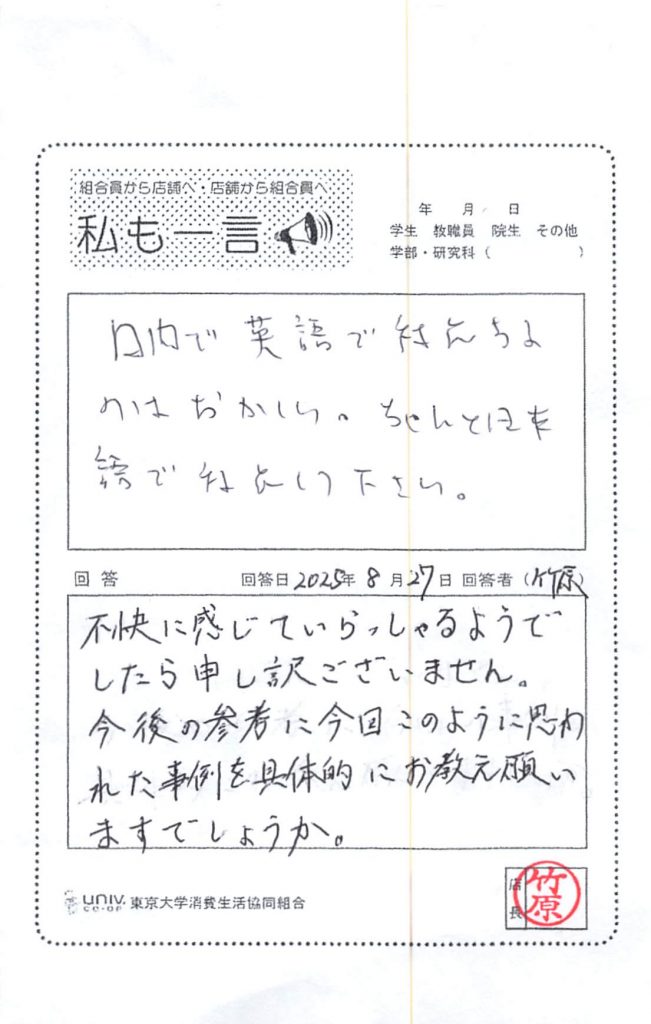 組合員から店舗へ・店舗から組合員へ
私も一言
年 月 日
学生 教職員 院生 その他
学部・研究科( )
日内で英語で対応するよ
のはおかしい。ちゃんと日本
語で対応して下さい。
回答 回答日2025年8月27日 回答者(竹原)
不快に感じていらっしゃるようで
したら申し訳ございません。
今後の参考に今回このように思わ
れた事例を具体的にお教え願い
ますでしょうか。
univ. CO-OP 東京大学消費生活協同組合
店長 竹原